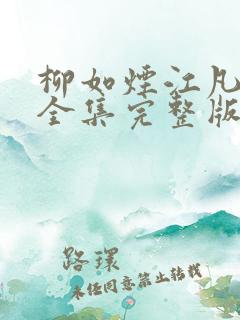 柳如烟江凡
全集完整版
路环
未经同意禁止转载